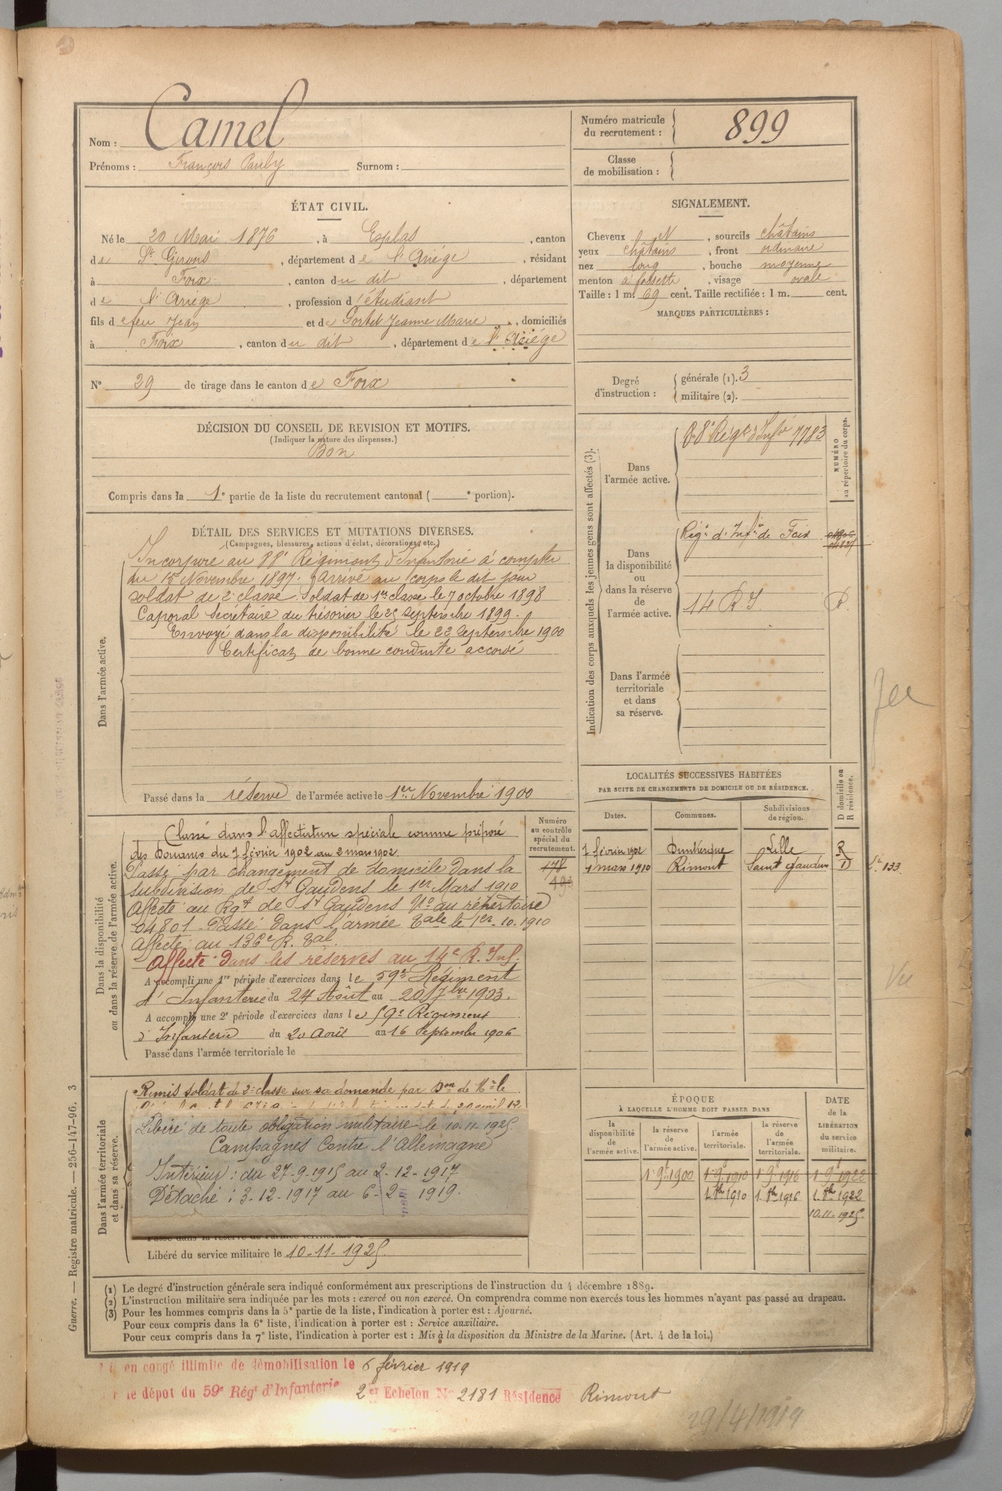 Nom : Camel
Prénoms : François Surnom :
Numéro matricule
du recrutement : 899
Classe
de mobilisation :
ÉTAT CIVIL.
Né le 20 Mai 1876, à Esplas, canton
de St Girons, département de l'Ariége, résidant
à Foix, canton du dit, département
de l'Ariége, profession d'étudiant
fils de feu Jean et de Jeanne Marie, domiciliés
à Foix, canton du dit, département de l'Ariége
N° 29 de tirage dans le canton de Foix
SIGNALEMENT.
Cheveux N, sourcils châtains
yeux châtains, front ordinaire
nez long, bouche moyenne
menton à fossette, visage ovale
Taille : 1 m. 69 cent. Taille rectifiée : 1 m. cent.
MARQUES PARTICULIÈRES :
Degré
d'instruction : générale (1). 3
militaire (2).
DÉCISION DU CONSEIL DE REVISION ET MOTIFS.
(Indiquer la nature des dispenses.)
Bon
Compris dans la 1e partie de la liste du recrutement cantonal ( e portion).
DÉTAIL DES SERVICES ET MUTATIONS DIVERSES.
(Campagnes, blessures, actions d'éclat, décorations, etc.)
Dans l'armée active.
Incorporé au 88e Régiment d'Infanterie à compter
du 15 Novembre 1897. Arrivé au corps le dit jour
soldat de 2e classe. Soldat de 1re classe le 7 octobre 1898
Caporal Secrétaire du trésorier le 25 septembre 1899.
Envoyé dans la disponibilité le 23 septembre 1900
Certificat de bonne conduite accordé
Passé dans la réserve de l'armée active le 1er Novembre 1900
Indication des corps auxquels les jeunes gens sont affectés (3).
NUMÉRO
au répertoire du corps.
Dans
l'armée active.
88 Régt d'Infie 7783
Dans
la disponibilité
ou
dans la réserve
de
l'armée active.
Régt d'Infie de Foix
14 RI
Dans l'armée
territoriale
et dans
sa réserve.
LOCALITÉS SUCCESSIVES HABITÉES
PAR SUITE DE CHANGEMENTS DE DOMICILE OU DE RÉSIDENCE.
Dates. Communes. Subdivisions
de région. D domicile ou
R résidence.
7 février 1902 Dunkerque Lille R
1 mars 1910 Rimont Saint Gaudens D
Dans la disponibilité
ou dans la réserve de l'armée active.
Numéro
au contrôle
spécial du
recrutement.
Classé dans l'affectation spéciale comme préposé
des Douanes du 7 février 1902 au 2 mars 1902.
Passé par changement de domicile dans la
subdivision de St Gaudens le 1er Mars 1910
Affecté au Rgt de St Gaudens No au répertoire
04801. Passé dans l'armée Tale le 1er. 10. 1910
Affecté au 136e R. Tal.
Affecté dans les réserves au 14e R. Inf.
A accompli une 1re période d'exercices dans le 59e Régiment
d'Infanterie du 24 Août au 20 7bre 1903.
A accompli une 2e période d'exercices dans le 59e Régiment
d'Infanterie du 20 Août au 16 Septembre 1906
Passé dans l'armée territoriale le
Dans l'armée territoriale
et dans sa réserve.
Remis soldat de 2e classe sur sa demande par
Libéré de toute obligation militaire le 10.11.1925
Campagnes Contre l'Allemagne
Intérieur : du 27-9-1915 au 2-12-1917
Détaché : 3-12-1917 au 6-2-1919.
Libéré du service militaire le 10-11-1925
ÉPOQUE
À LAQUELLE L'HOMME DOIT PASSER DANS
la
disponibilité
de
l'armée active.
la réserve
de
l'armée
active.
l'armée
territoriale.
la réserve
de
l'armée
territoriale.
DATE
de la
LIBÉRATION
du service
militaire.
1 9 1900 1 9 1910 1 9 1916 1 9 1922
1. 8bre 1910 1. 8bre 1916 1. 8bre 1922
10.11.1925
(1) Le degré d'instruction générale sera indiqué conformément aux prescriptions de l'instruction du 4 décembre 1889.
(2) L'instruction militaire sera indiquée par les mots : exercé ou non exercé. On comprendra comme non exercés tous les hommes n'ayant pas passé au drapeau.
(3) Pour les hommes compris dans la 5e partie de la liste, l'indication à porter est : Ajourné.
Pour ceux compris dans la 6e liste, l'indication à porter est : Service auxiliaire.
Pour ceux compris dans la 7e liste, l'indication à porter est : Mis à la disposition du Ministre de la Marine. (Art. 4 de la loi.)
Guerre. — Registre matricule. — 256-147-96. 3
en congé illimité de démobilisation le 6 février 1919
le dépôt du 59e Régt d'Infanterie 2e Echelon No 2181 Résidence Rimont
29/4/1919